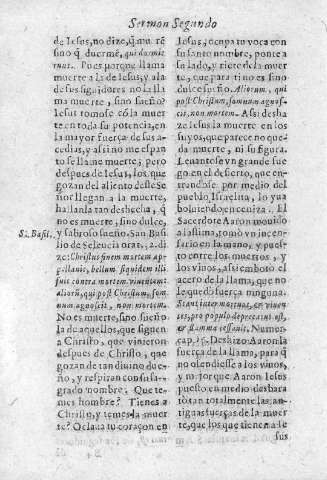 Sermon Segundo
de Iesus, no dize, q̃ mu rẽ
sino q̃ duermẽ, qui dormie
runt. Pues porque llama
muerte a la de Iesus, y a la
de sus siguidores no la lla
ma muerte, sino sueño?
Iesus tomose cõ la muer
te en toda su potencia, en
la mayor fuerça de sus a-
cedias, y assi no me espan
to se llame muerte; pero
despues de Iesus, los que
gozan del aliento deste Se
ñor llegan a la muerte,
hallanla tan deshecha, q̃
no es muerte, sino dulce,
S. Basil.
y sabroso sueño. San Basi
lio de Seleucia orat. 2. di
ze: Christus finem mortem
appellanit, bellum siquidem illi
fuit contra mortem,
aliorũ, qui post Christum, som
num agnoscit, non mortem.
No es muerte, sino sueño
la de aquellos, que siguen
a Christo, que vinieron
despues de Christo, que
gozan de tan diuino due-
ño, y respiran con su sa-
grado nombre: Que te-
mes hombre? Tienes a
Christo, y temes la muer
te? Oclaua tu coraçon en
Iesus, ocupa tu voca con
su santo nombre, ponte a
su lado, y riete de la muer
te, que para ti no es sino
dulce sueño. Aliorum, qui
post Christum, somnum agnos-
cit, non mortem. Assi desha
ze Iesus la muerte en los
suyos, que parece no que-
da muerte, ni su figura.
Leuantose vn grande fue
go en el desierto, que en-
trandose por medio del
pueblo Israelita, lo yua
boluiendo en ceniza. El
Sacerdote Aaron mouido
a lastima, tomò vn incen-
sario en la mano, y puesto
entre los muertos, y
los viuos, assi emboto el
acero de la llama, que no
le quedò fuerça ninguna.
Stans inter mortuos, ac viuen-
tes, pro populo deprecatus est,
& flamma cessauit, Numer.
cap. 16. Deshizo Aaron la
fuerça de la llama, para q̃
no ofendiesse a los viuos,
y ni porque Aaron Iesus
puesto en medio desbara
tò tan totalmente las an-
tiguas fuerças de la muer
te, que los que tienen a Ie
sus